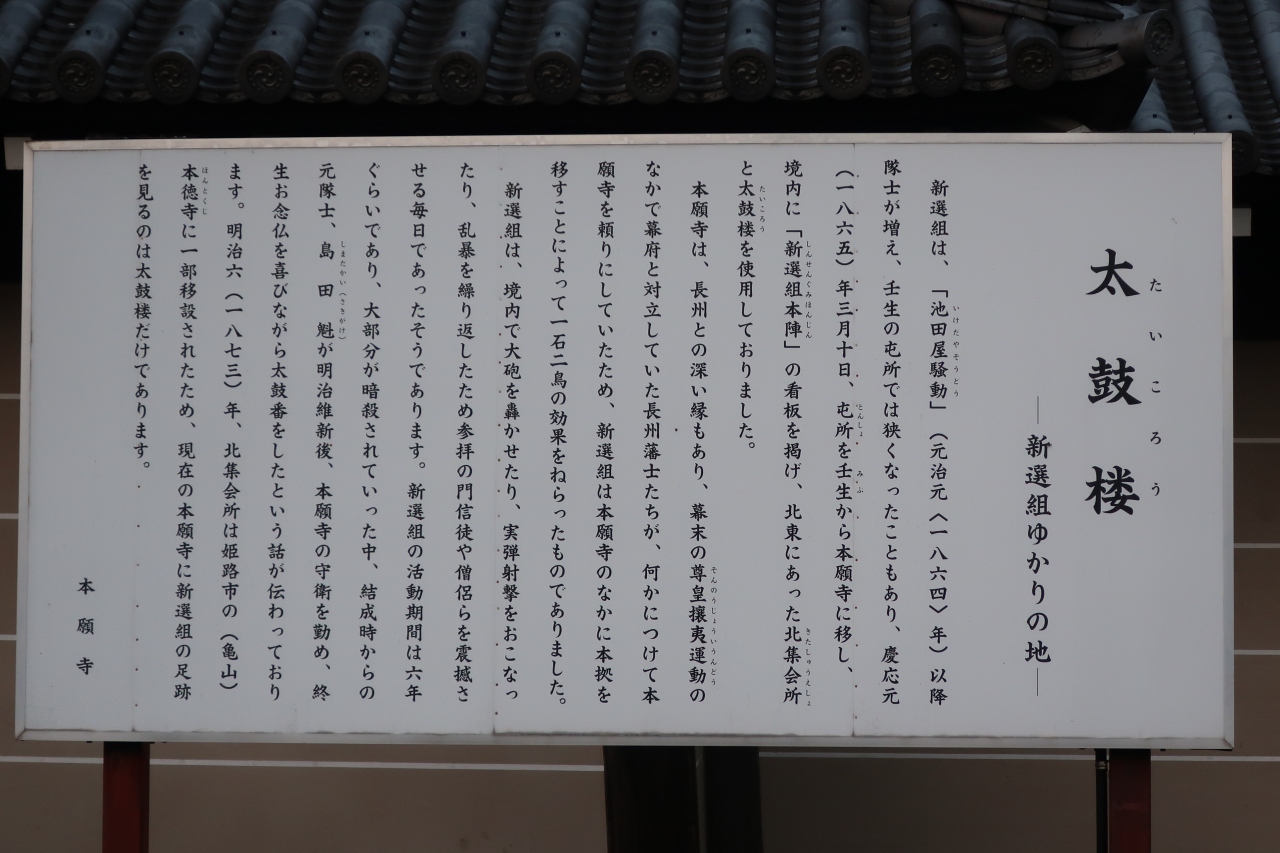 太鼓楼
たいころう
―新選組ゆかりの地―
新選組は、「池田屋騒動」（元治元〈一八六四〉年）以降
いけだやそうどう
隊士が増え、壬生の屯所では狭くなったこともあり、慶応元
（一八六五）年三月十日、屯所を壬生から本願寺に移し、
とんしょ みぶ
境内に「新選組本陣」の看板を掲げ、北東にあった北集会所
しんせんぐみほんじん きたしゅうえしょ
と太鼓楼を使用しておりました。
たいころう
本願寺は、長州との深い縁もあり、幕末の尊皇攘夷運動の
そんのうじょういうんどう
なかで幕府と対立していた長州藩士たちが、何かにつけて本
願寺を頼りにしていたため、新選組は本願寺のなかに本拠を
移すことによって一石二鳥の効果をねらったものでありました。
新選組は、境内で大砲を轟かせたり、実弾射撃をおこなっ
たり、乱暴を繰り返したため参拝の門信徒や僧侶らを震撼さ
せる毎日であったそうであります。新選組の活動期間は六年
ぐらいであり、大部分が暗殺されていった中、結成時からの
元隊士、島田魁が明治維新後、本願寺の守衛を勤め、終
しまだかい（さきがけ）
生お念仏を喜びながら太鼓番をしたという話が伝わっており
ます。明治六（一八七三）年、北集会所は姫路市の（亀山）
本徳寺に一部移設されたため、現在の本願寺に新選組の足跡
ほんとくじ
を見るのは太鼓楼だけであります。
本願寺